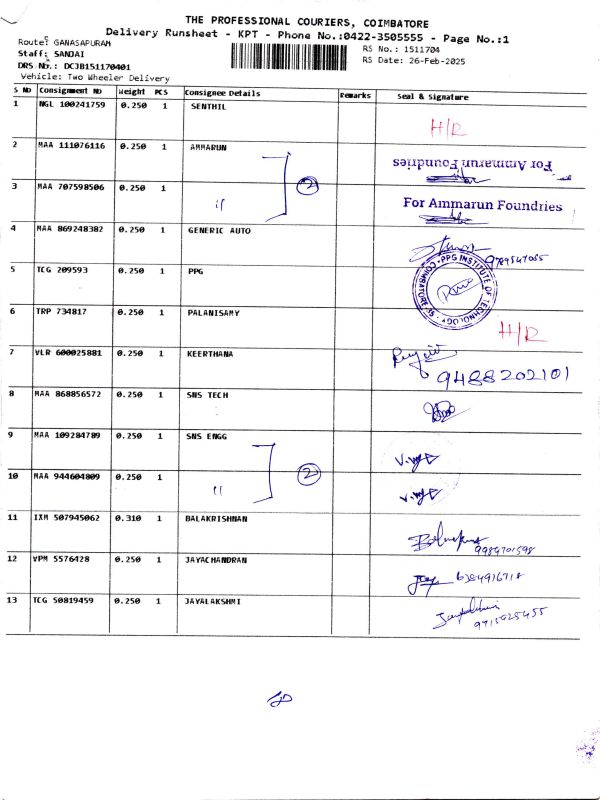 THE PROFESSIONAL COURIERS, COIMBATORE
Delivery Runsheet - KPT - Phone No.:0422-3505555 - Page No.:1
Route: GANASAPURAM
RS No. : 1511704
Staff: SANJAI
RS Date: 26-Feb-2025
DRS No.: DCJB151170401
Vehicle: Two Wheeler Delivery
S No Consignment No Weight PCS Consignee Details Remarks Seal & Signature
1 NGL 100241759 0.250 1 SENTHIL H/R
2 MAA 111076116 0.250 1 AMMARUN For Ammarun Foundries
3 MAA 707598506 0.250 1 〃 2 For Ammarun Foundries
4 MAA 869248382 0.250 1 GENERIC AUTO
5 TCG 209593 0.250 1 PPG PPG INSTITUTE OF TECHNOLOGY
6 TRP 734817 0.250 1 PALANISAMY H/R
7 VLR 600025881 0.250 1 KEERTHANA
9488202101
8 MAA 868856572 0.250 1 SNS TECH
9 MAA 109284789 0.250 1 SNS ENGG
10 MAA 944604809 0.250 1 〃 2
11 IXM 507945062 0.310 1 BALAKRISHNAN
12 VPM 5576428 0.250 1 JAYACHANDRAN
13 TCG 50819459 0.250 1 JAYALAKSHMI